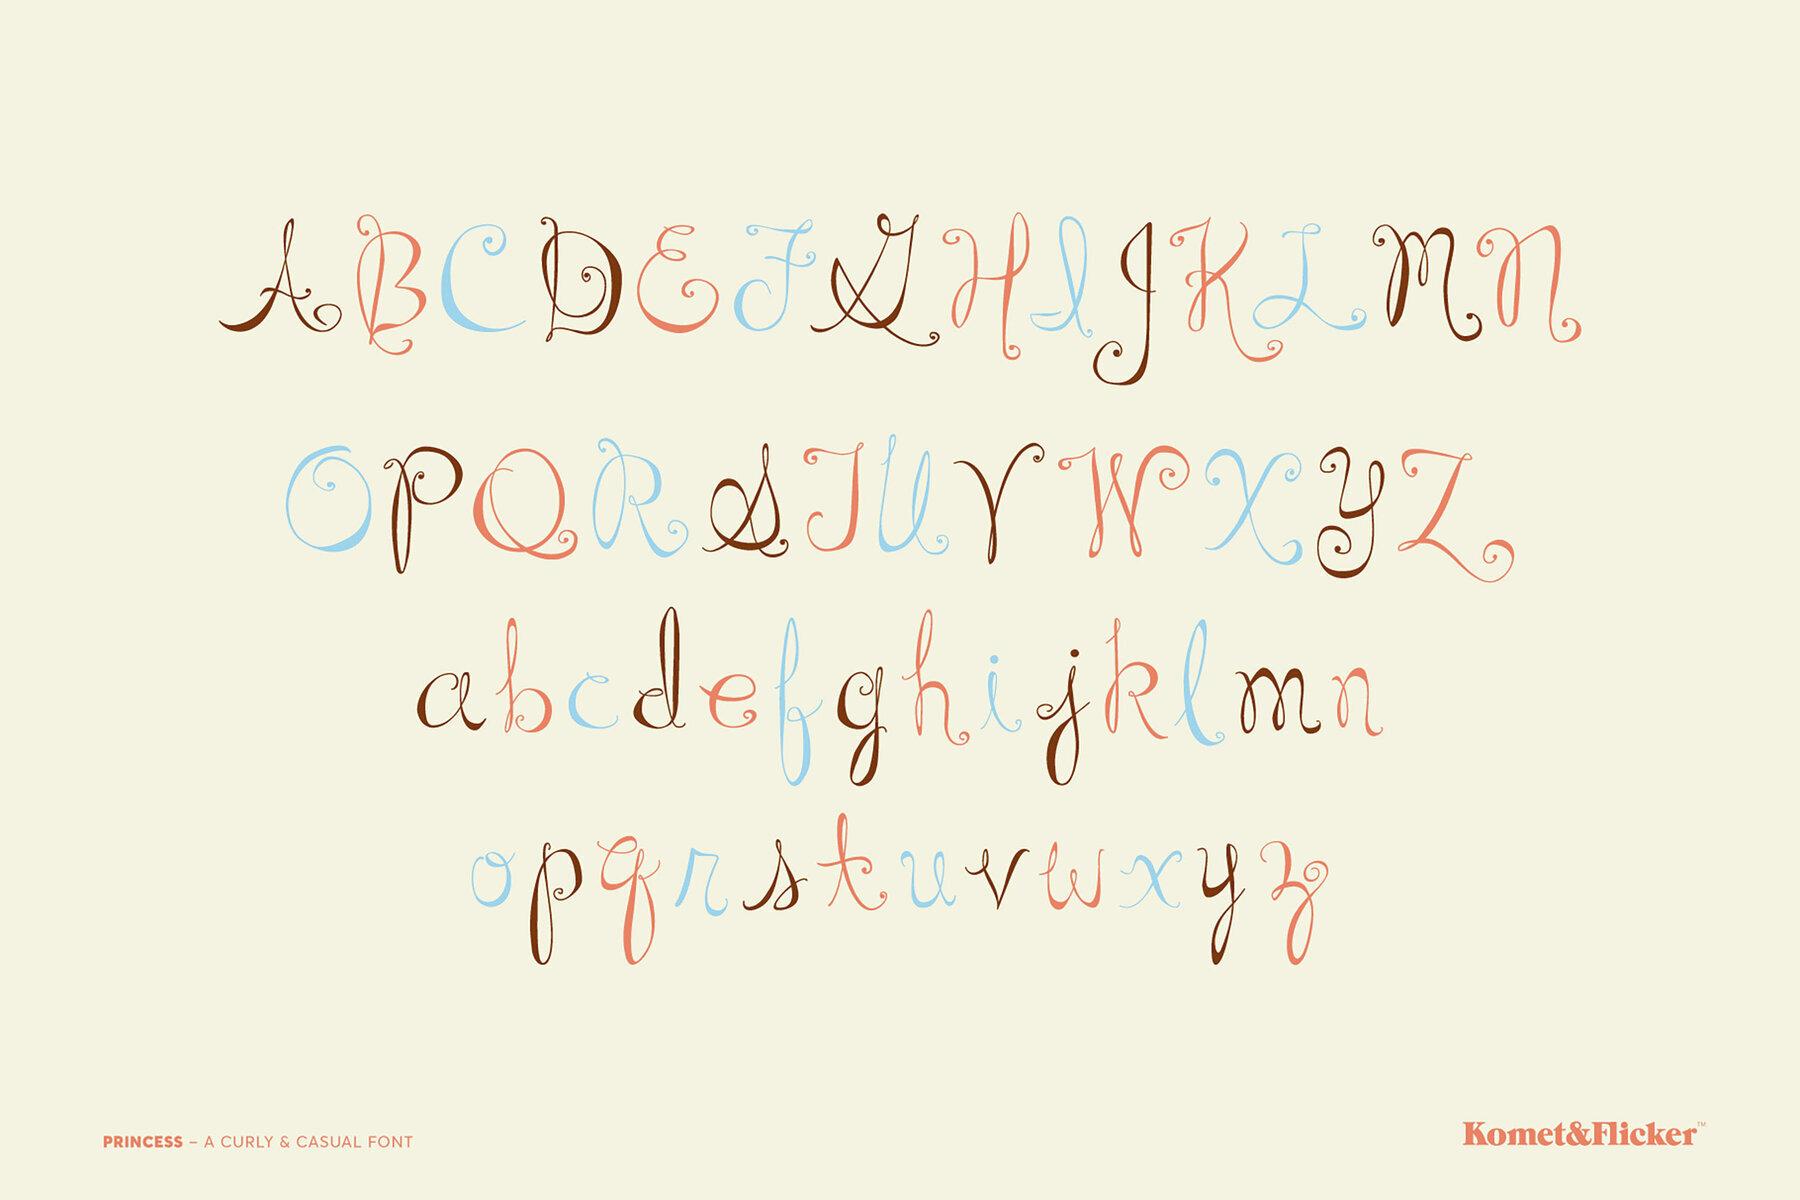 A B C D E F G H I J K L M N
O P Q R S T U V W X Y Z
a b c d e f g h i j k l m n
o p q r s t u v w x y z
PRINCESS – A CURLY & CASUAL FONT
Komet&Flicker™